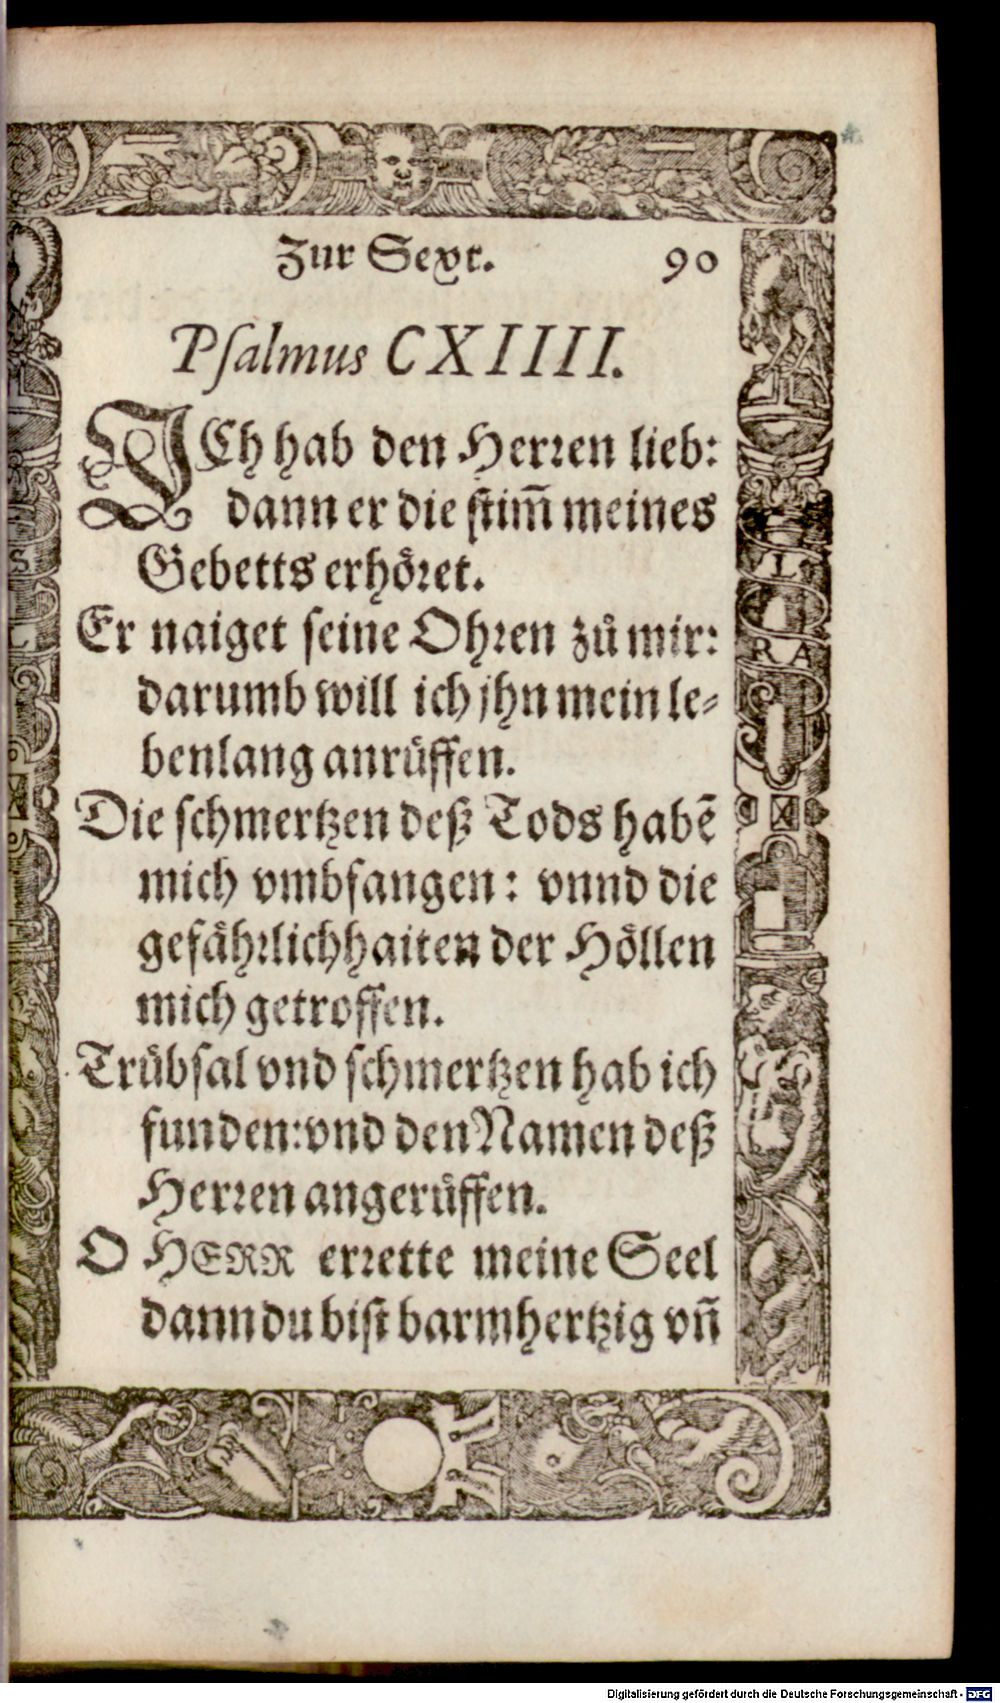 Zur Sext. 90
Psalmus CXIIII.
ICh hab den Herren lieb:
dann er die stim̅ meines
Gebetts erhöret.
Er naiget seine Ohren zů mir:
darumb will ich jhn mein le-
benlang anrůffen.
Die schmertzen deß Tods habẽ
mich vmbfangen: vnnd die
gefährlichhaiten der Höllen
mich getroffen.
Trübsal vnd schmertzen hab ich
funden: vnd den Namen deß
Herren angerůffen.
O HERR errette meine Seel
dann du bist barmhertzig vn̅
S
I
RA
Digitalisierung gefördert durch die Deutsche Forschungsgemeinschaft - DFG